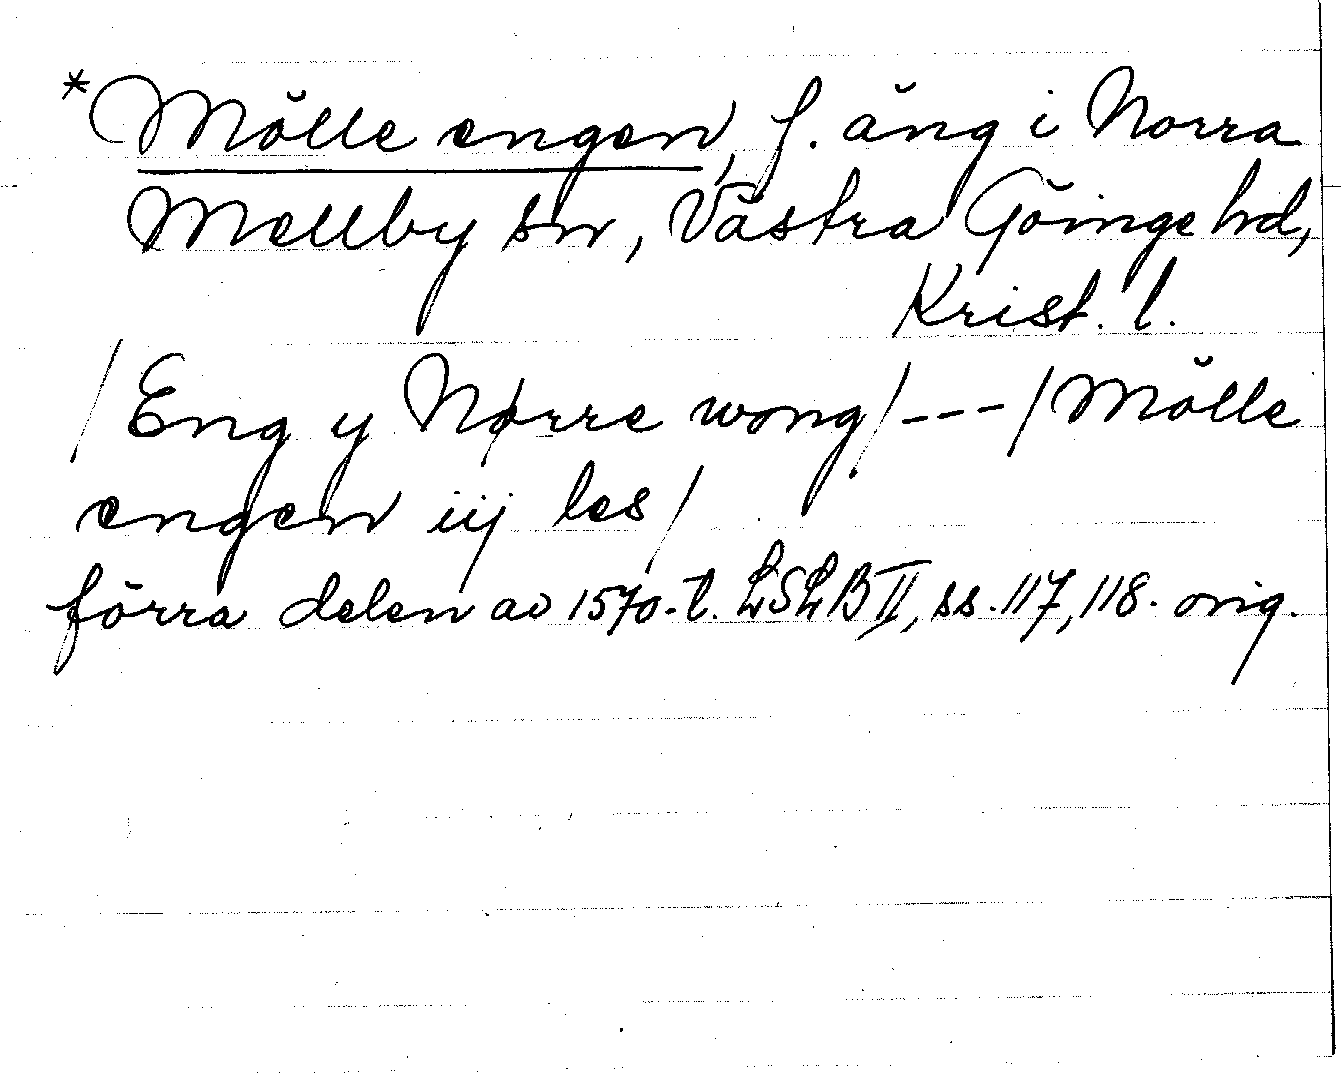 *Mölle engen, f. äng i Norra
Mellby sn, Västra Göinge hd,
Krist. l.
/Eng y Nørre wong/---/Mölle
engen iij les/
förra delen av 1570-t. LSLB II, ss. 117, 118. orig.